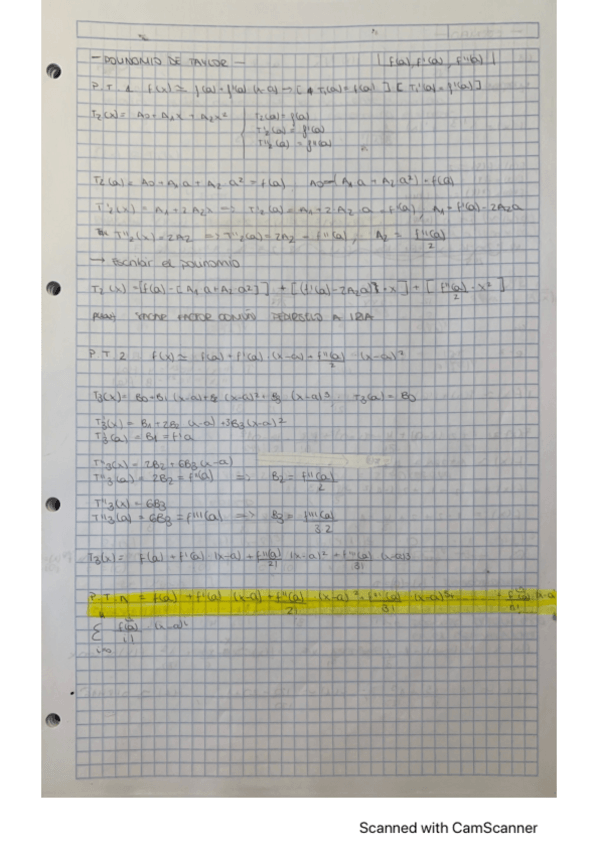 - POLINOMIO DE TAYLOR -
| f(a), f'(a), f''(a) |
P.T. 1 f(x) ≃ f(a) + f'(a) (x-a) → [ T₁(a) = f(a) ] [ T₁'(a) = f'(a) ]
T₂(x) = A₀ + A₁x + A₂x²
T₂(a) = f(a)
T'₂(a) = f'(a)
T''₂(a) = f''(a)
T₂(a) = A₀ + A₁ a + A₂ · a² = f(a), A₀ = -(A₁ a + A₂ a²) + f(a)
T'₂(x) = A₁ + 2 A₂x => T'₂(a) = A₁ + 2 · A₂ · a = f'(a), A₁ = f'(a) - 2A₂a
T''₂(x) = 2A₂ => T''₂(a) = 2A₂ = f''(a), A₂ = f''(a)/2
→ Escribir el polinomio
T₂(x) = [f(a) - [A₁ a + A₂ a²]] + [(f'(a) - 2A₂a) · x] + [f''(a)/2 · x²]
SACAR FACTOR COMÚN
P.T. 2 f(x) ≃ f(a) + f'(a) · (x-a) + f''(a)/2 · (x-a)²
T₃(x) = B₀ + B₁ (x-a) + B₂ (x-a)² + B₃ · (x-a)³, T₃(a) = B₀
T'₃(x) = B₁ + 2B₂ (x-a) + 3B₃(x-a)²
T'₃(a) = B₁ = f'a
T''₃(x) = 2B₂ + 6B₃(x-a)
T''₃(a) = 2B₂ = f''(a) => B₂ = f''(a)/2
T'''₃(x) = 6B₃
T'''₃(a) = 6B₃ = f'''(a) => B₃ = f'''(a)/3·2
T₃(x) = f(a) + f'(a) · (x-a) + f''(a)/2! · (x-a)² + f'''(a)/3! (x-a)³
P.T. n = f(a) + f'(a) · (x-a) + f''(a)/2! · (x-a)² + f'''(a)/3! · (x-a)³ + ... + fⁿ(a)/n! · (x-a
Σ fⁱ(a)/i! · (x-a)ⁱ
n
i=0
Scanned with CamScanner